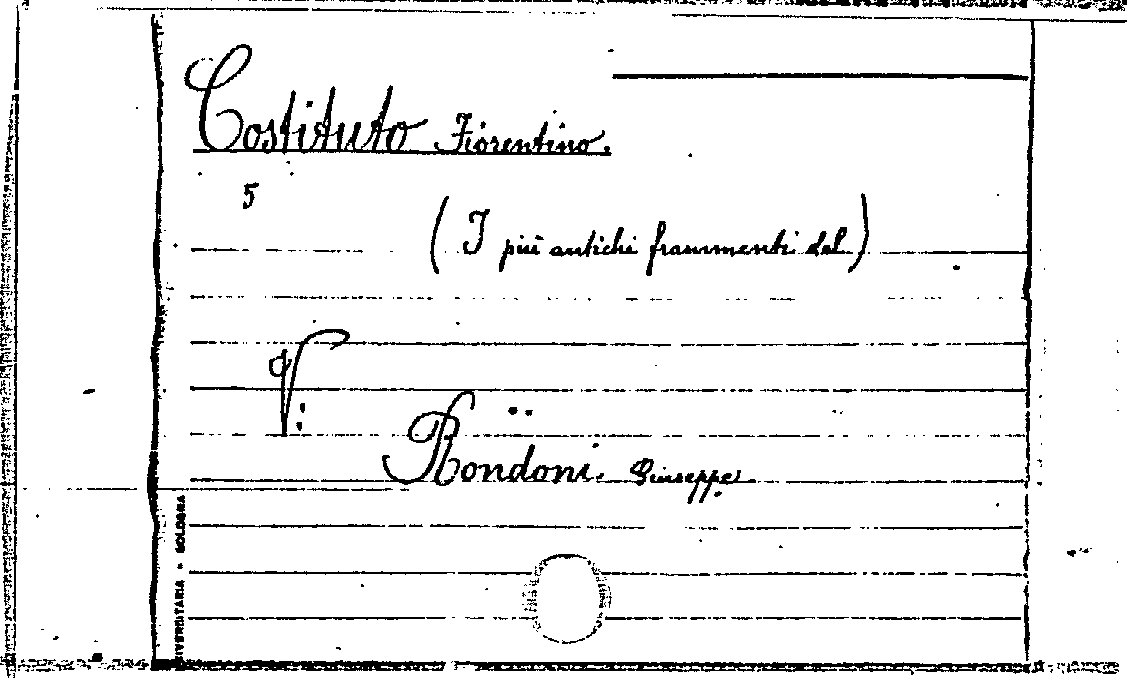 Costituto Fiorentino.
5
( I più antichi frammenti del )
V:
Rondoni. Giuseppe.
UNIVERSITARIA - BOLOGNA